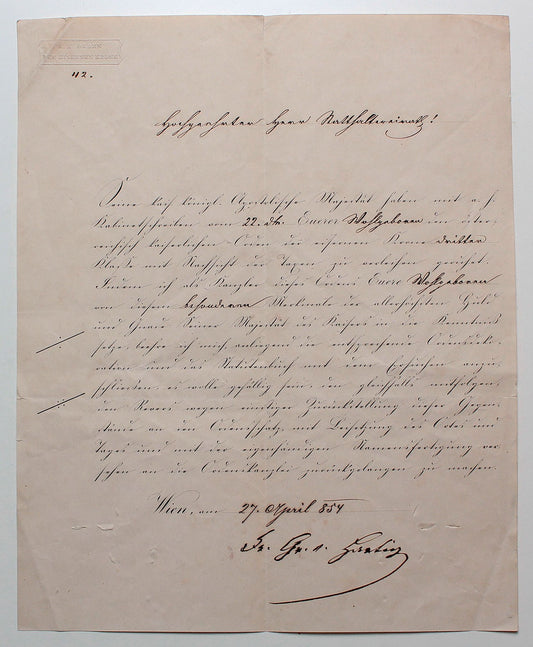 K. K. ORDEN
DER EISERNEN KRONE
42.
Hochgeehrter Herr Statthaltereirath!
Seine kais. königl. Apostolische Majestät haben mit a. h.
Kabinetschreiben vom 22. ds. Euerer Wohlgeboren den öster-
reichisch kaiserlichen Orden der eisernen Krone dritter
Klasse mit Nachsicht der Taxen zu verleihen geruhet.
Indem ich als Kanzler dieses Ordens Euere Wohlgeboren
von diesem besonderen Merkmale der allerhöchsten Huld
und Gnade Seiner Majestät des Kaisers in die Kenntniß
setze, beehre ich mich, anliegend die entsprechende Ordensdeko-
ration und das Statutenbuch mit dem Ersuchen anzu-
schließen, es wolle gefällig sein, den gleichfalls mitfolgen-
den Revers wegen einstiger Zurückstellung dieser Gegen-
stände an den Ordensschatz, mit Beisetzung des Ortes und
Tages und mit der eigenhändigen Namensfertigung ver-
sehen an die Ordenskanzlei zurückgelangen zu machen.
Wien, am 27. April 854
Fr. Gr. v. Hartig